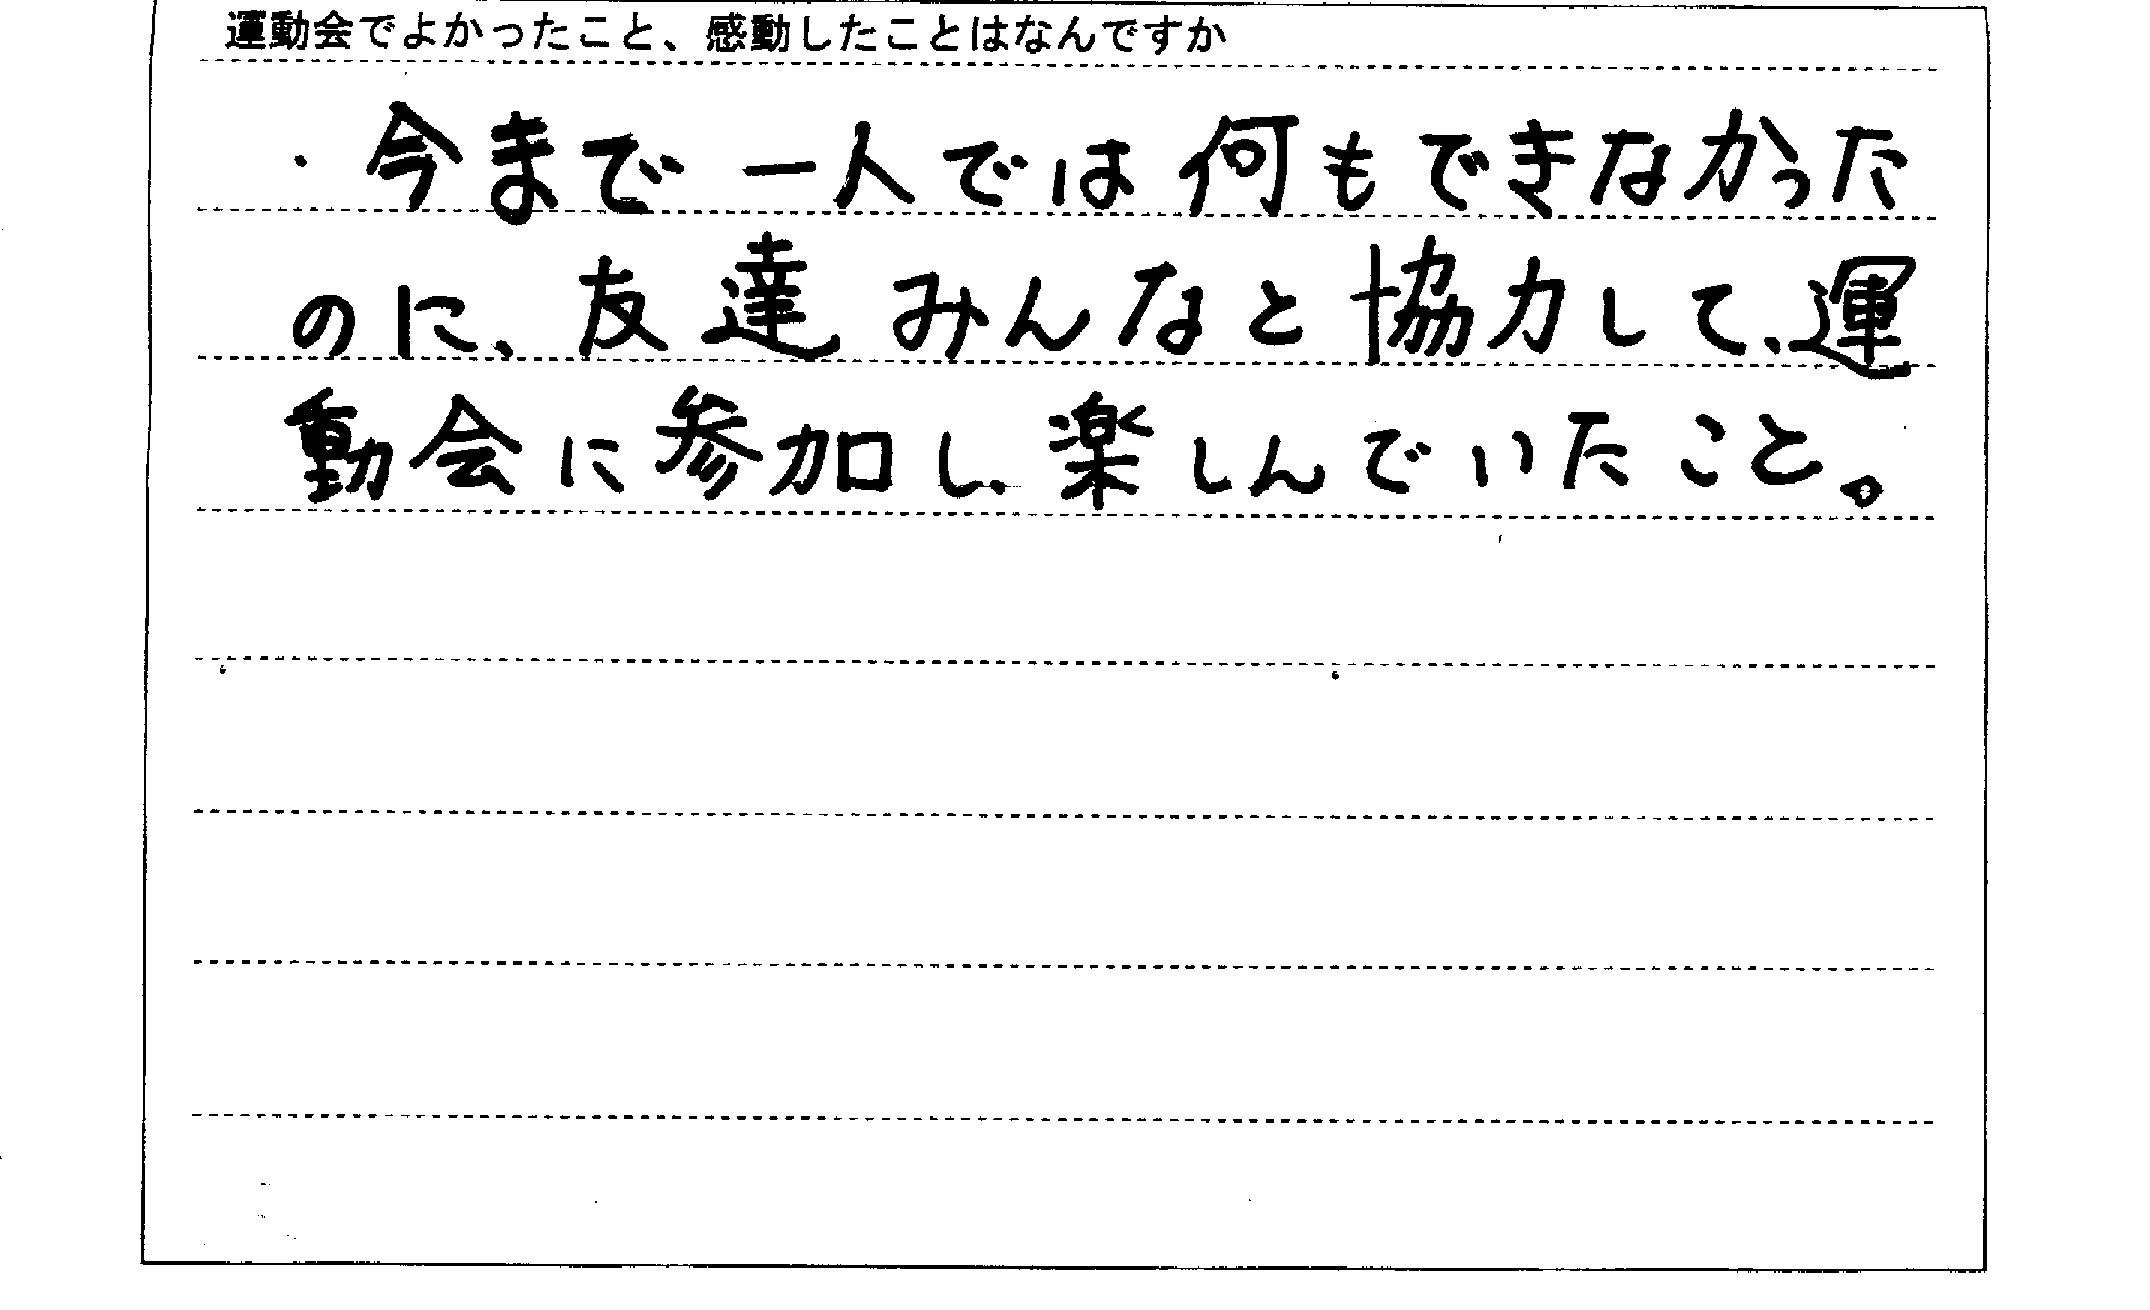 運動会でよかったこと、感動したことはなんですか
・今まで一人では何もできなかった
のに、友達みんなと協力して、運
動会に参加し、楽しんでいたこと。